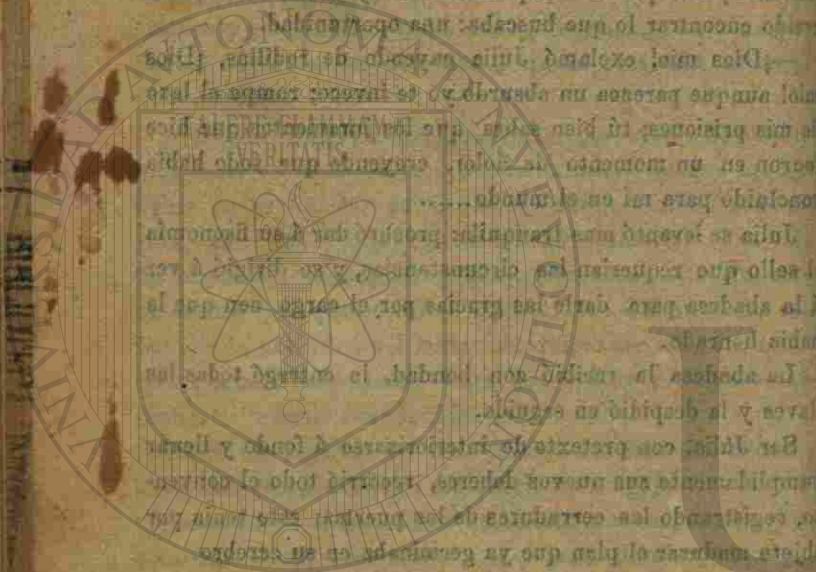 encontrar lo que buscaba: una oportunidad.
—¡Dios mio! exclamó Julia cayendo de rodillas, ¡Dios
mio! aunque parezca un absurdo yo te invoco; rompe el lazo
de mis prisiones; tú bien sabes que los juramentos que hice
fueron en un momento de dolor, creyendo que todo habia
concluido para mí en el mundo.....
Julia se levantó mas tranquila; procuró dar á su fisonomía
el sello que requerian las circunstancias, y se dirigió á ver
á la abadesa para darle las gracias por el cargo con que la
habia honrado.
La abadesa la recibió con bondad, le entregó todas las
llaves y la despidió en seguida.
Sor Julia, con pretexto de interiorizarse á fondo y llenar
cumplidamente sus nuevos deberes, recorrió todo el conven-
to, registrando las cerraduras de las puertas; esto tenia por
objeto madurar el plan que ya germinaba en su cerebro.
UNIVERSIDAD AUTONOMA DE NUEVO LEON
ALERE FLAMMAM
VERITATIS
U